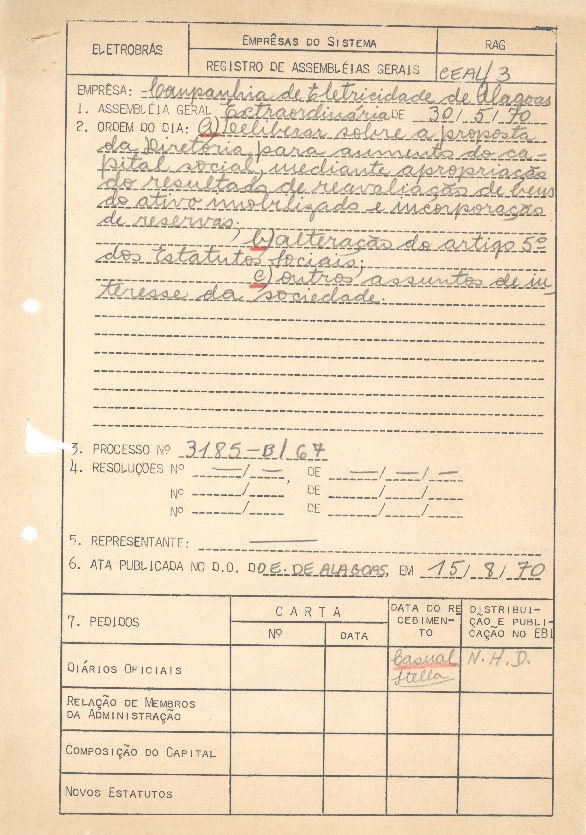 ELETROBRÁS
EMPRÊSAS DO SISTEMA
RAG
REGISTRO DE ASSEMBLÉIAS GERAIS
CEAL/3
EMPRÊSA: Companhia de Eletricidade de Alagoas
1. ASSEMBLÉIA GERAL Extraordinária DE 30/5/70
2. ORDEM DO DIA: a) Deliberar sobre a proposta
da Diretoria para aumento do ca-
pital social, mediante apropriação
do resultado de reavaliação de bens
do ativo imobilizado e incorporação
de reservas;
b) alteração do artigo 5º
dos Estatutos Sociais;
c) outros assuntos de in-
teresse da sociedade.
3. PROCESSO Nº 3185-B/67
4. RESOLUÇÕES Nº —/—, DE —/—/—
Nº /  DE / /
Nº /  DE / /
5. REPRESENTANTE: —
6. ATA PUBLICADA NO D.O. DO E. DE ALAGOAS, EM 15/8/70
7. PEDIDOS
CARTA
Nº
DATA
DATA DO RE
CEBIMEN-
TO
DISTRIBUI-
ÇÃO E PUBLI-
CAÇÃO NO EBI
DIÁRIOS OFICIAIS
Casual
Stella
N.H.D.
RELAÇÃO DE MEMBROS
DA ADMINISTRAÇÃO
COMPOSIÇÃO DO CAPITAL
NOVOS ESTATUTOS